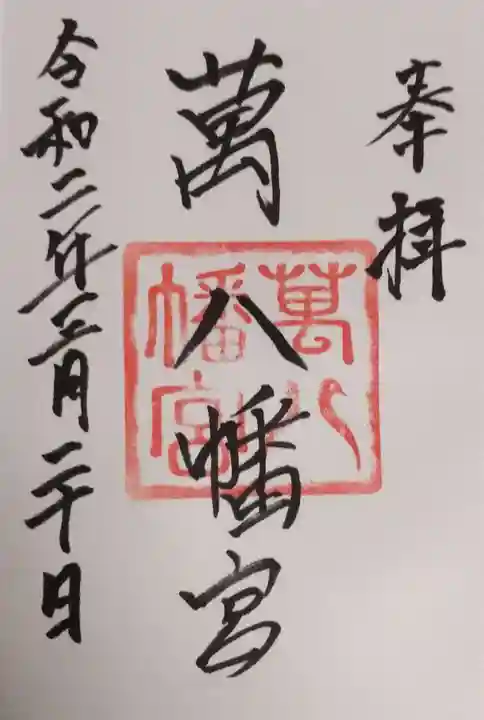 奉拝
萬八幡宮
萬八幡宮
令和二年三月二十日